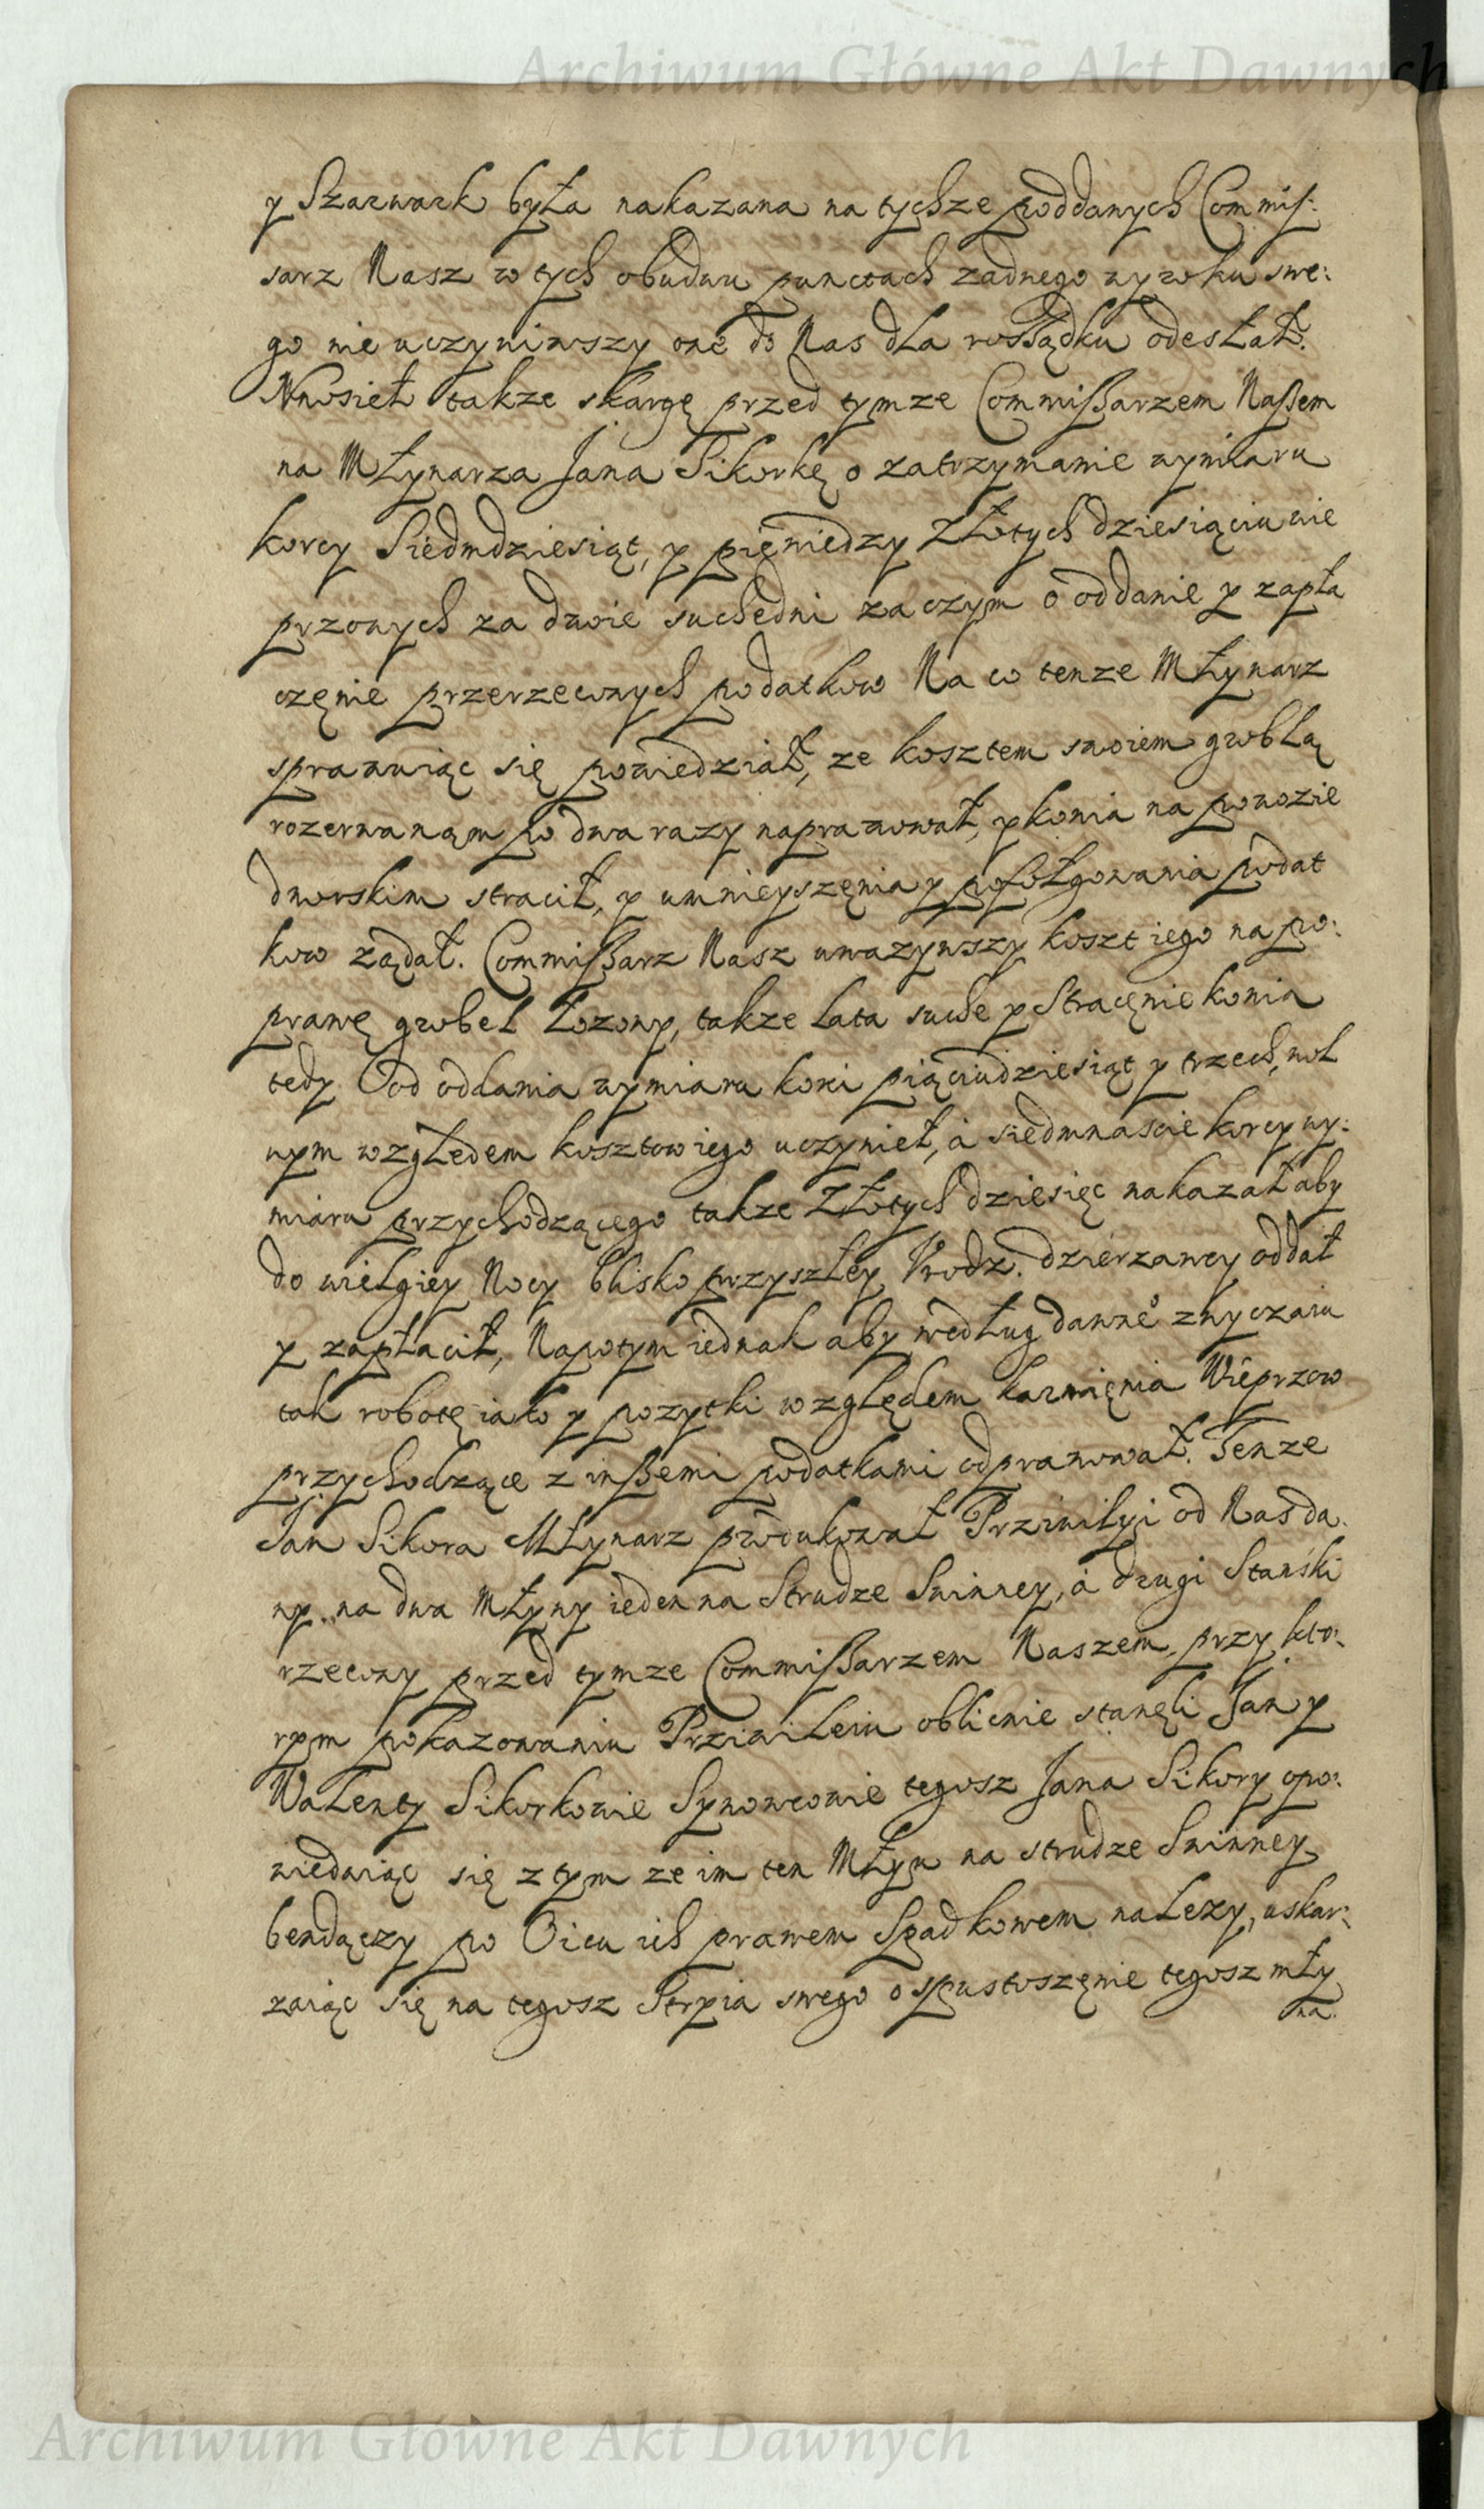 Archiwum Główne Akt Dawnych
y Szarwark była nakazana na tychze poddanych Commis:
sarz Nasz w tych obudwu punctach zadnego wyroku swe:
go nie uczyniwszy one do Nas dla rossądku odesłał.
Wnosieł takze skargę przed tymze Commißarzem Naßem
na Młynarza Jana Sikorkę o zatrzymanie wymiaru
korcy Siedmdziesiąt, y pięniedzy Złotych dziesiąciu nie
przonych za dwie suchedni zaczym o oddanie y zapła
częnie przerzeconych podatkow Na co tenze Młynarz
sprawuiąc się powiedział, ze kosztem swoiem groblą
rozerwanąm po dwa razy naprawował, y konia na powozie
dworskim stracił, y umnieyszęnia y pofolgowania podat
kow ządał. Commißarz Nasz uwazywszy koszt iego na po:
prawę grobel łozony, takze lata suche y Stracęnie konia
tedy Od oddania wymiaru korci piąciudziesiąt y trzech, wol
nym względem kosztow iego uczynieł, á siedmnascie korcy wy:
miaru przychodzącego takze Złotych dziesięc nakazał aby
do wielgiey Nocy blisko przyszłey Urodz. dzierzawcy oddał
y zapłacił, Napotym iednak aby według dawne° zwyczaiu
tak robotę iako y pozytki względem karmięnia Wieprzow
przychodzące z inßemi podatkami odprawował. Tenze
Jan Sikora Młynarz produkował Prziwilyi od Nas da.
ny. na dwa Młyny ieden na Strudze Swinney, á drugi Stański
rzeczny przed tymze Commißarzem Naszem, przy kto:
rym pokazowaniu Prziwileiu oblicnie stanęli Jan y
Walenty Sikorkowie Synowcowie tegosz Jana Sikory opo:
wiedaiąc się z tym ze im ten Młyn na strudze Swinney
bendączy po Oicu ich prawem Spadkowem nalezy, uskar:
zaiąc się na tegosz Stryia swego o spustoszęnie tegosz mły
na.
Archiwum Główne Akt Dawnych